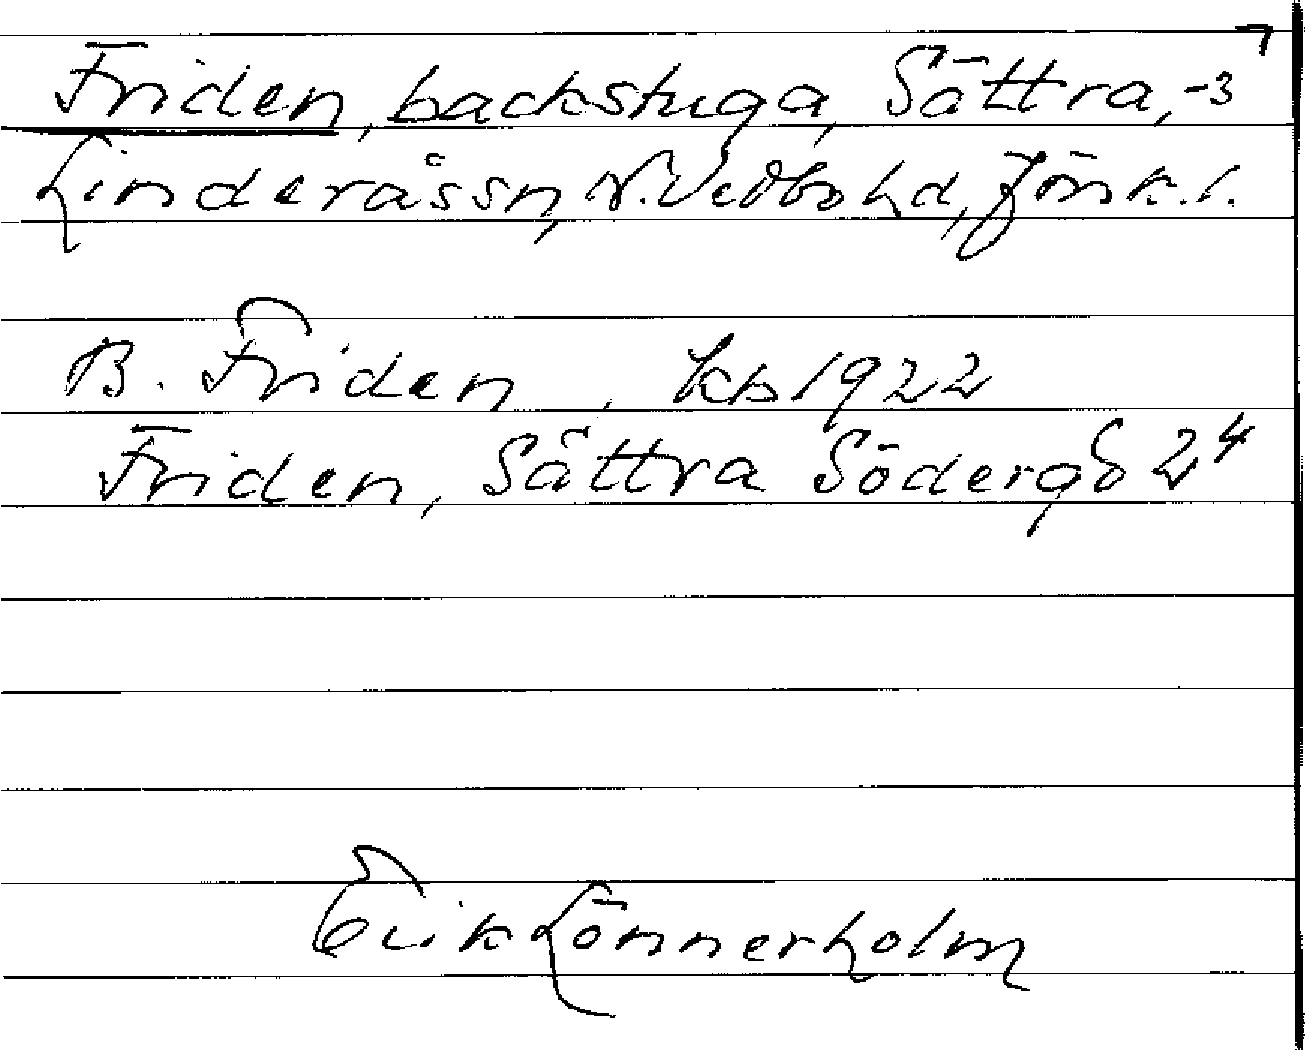 Friden, backstuga, Sättra, -3
Linderås sn, N. Vedbo hd, Jönk. l.
B. Friden, kb 1922
Friden, Sättra Söderg 2⁴
Erik Lönnerholm